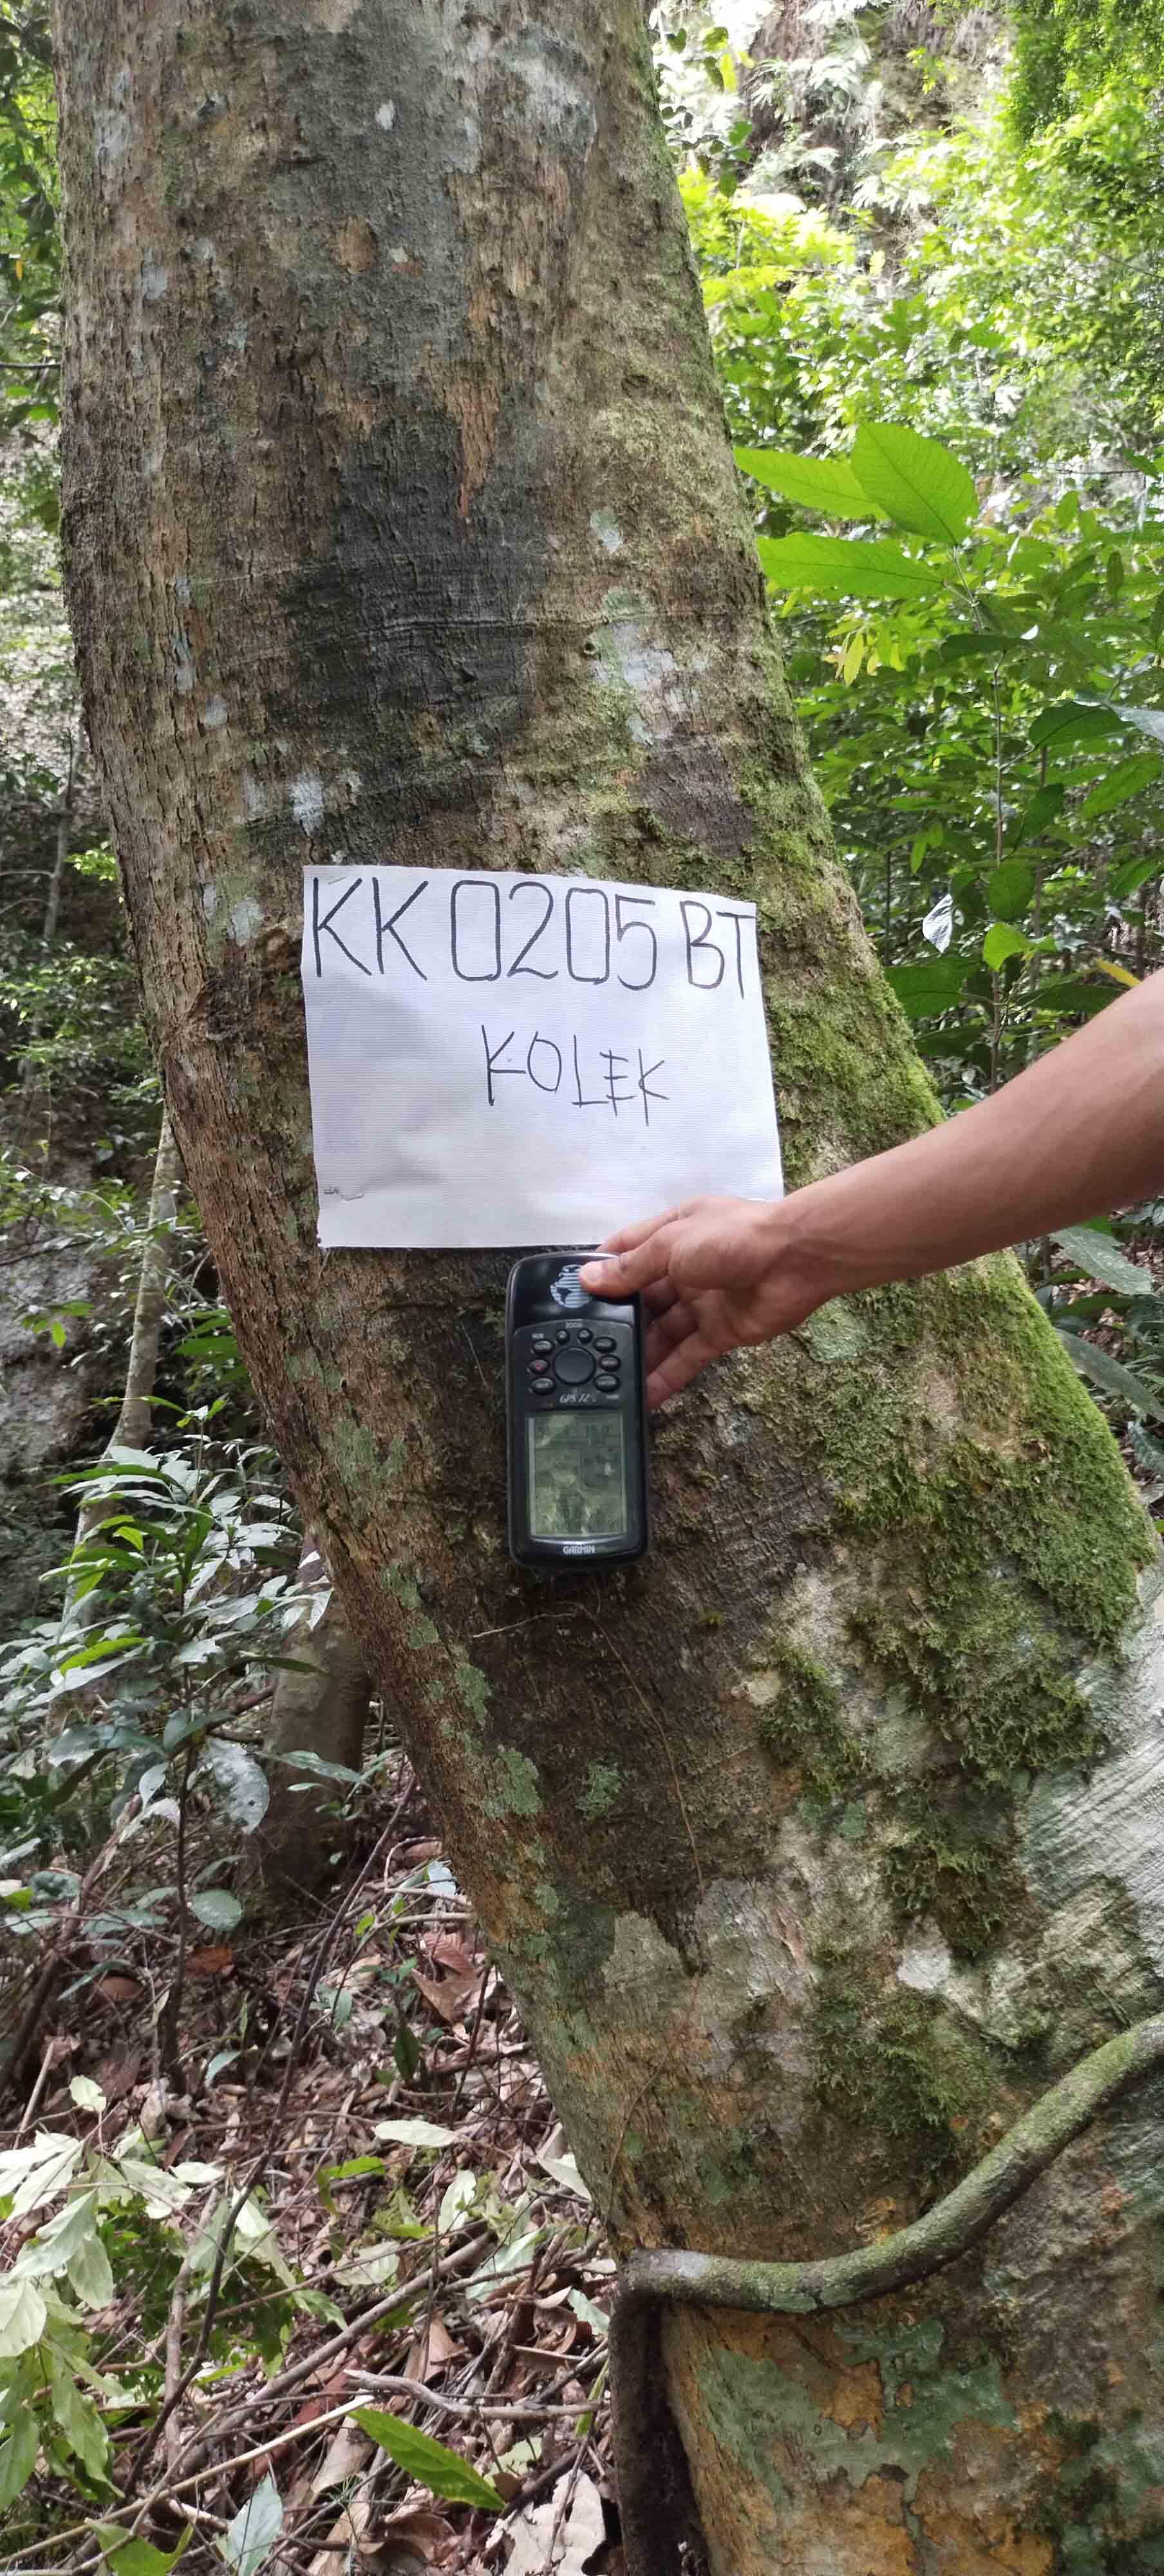 KK 0205 BT
KOLEK
ZOOM
GPS 72
GARMIN